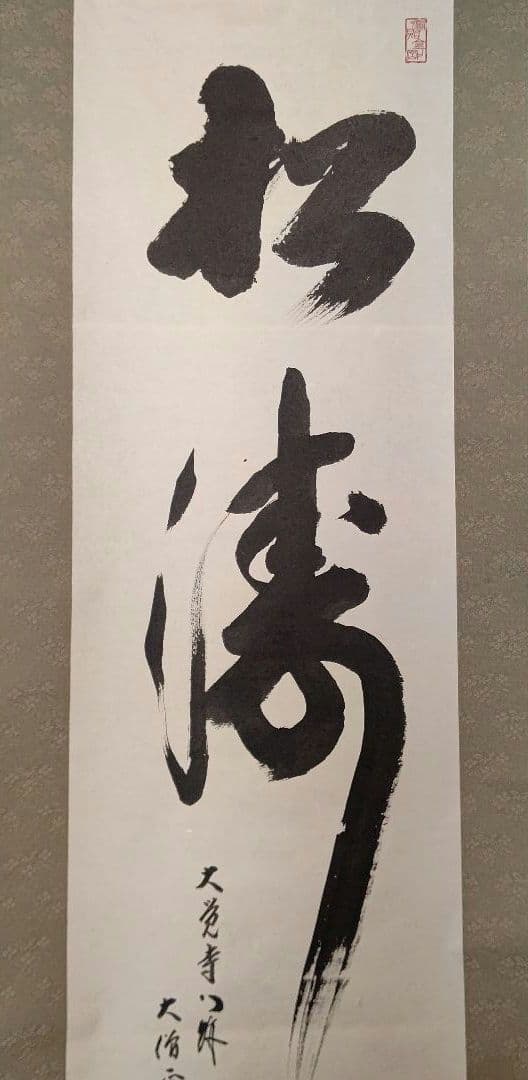 松濤
大覚寺門跡
大僧正